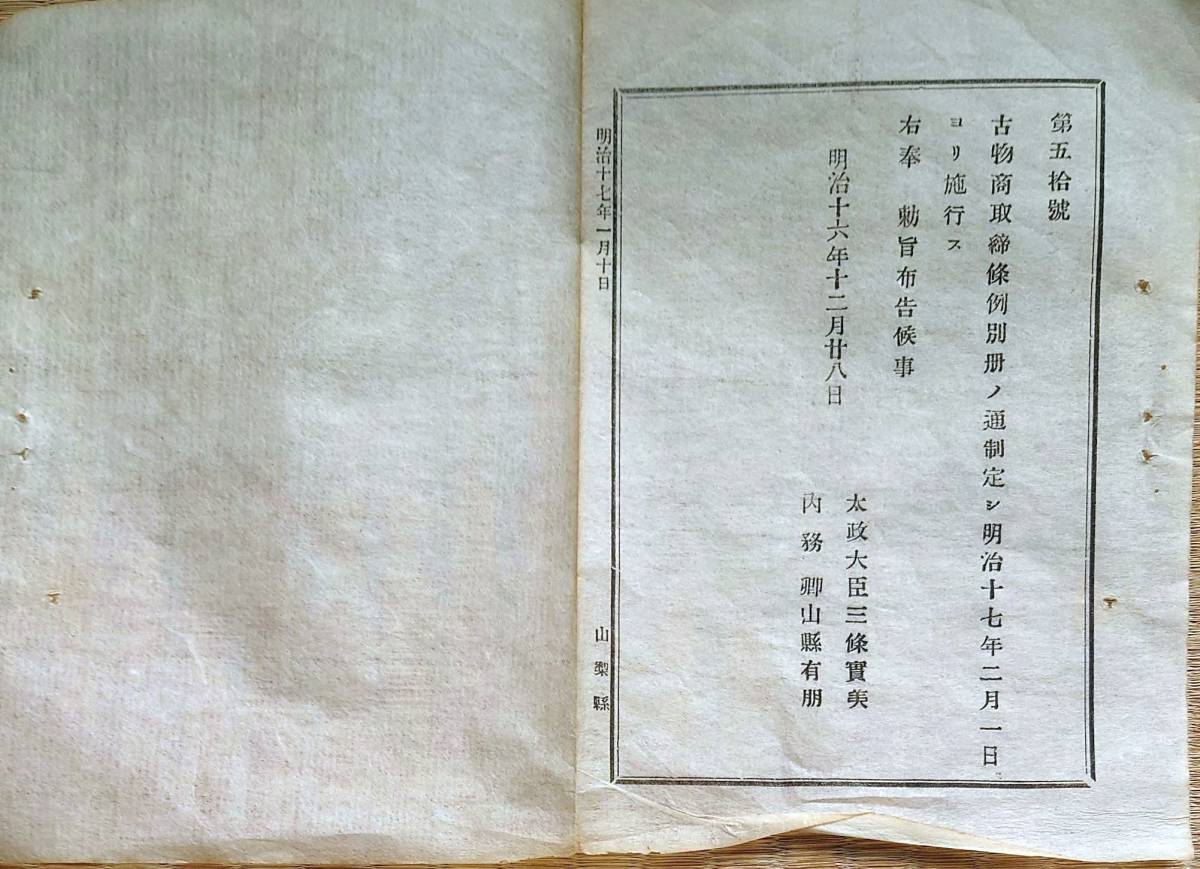 第五拾號
古物商取締條例別册ノ通制定シ明治十七年二月一日
ヨリ施行ス
右奉　勅旨布告候事
明治十六年十二月廿八日
太政大臣三條實美
内務卿山縣有朋
明治十七年一月十日
山梨縣